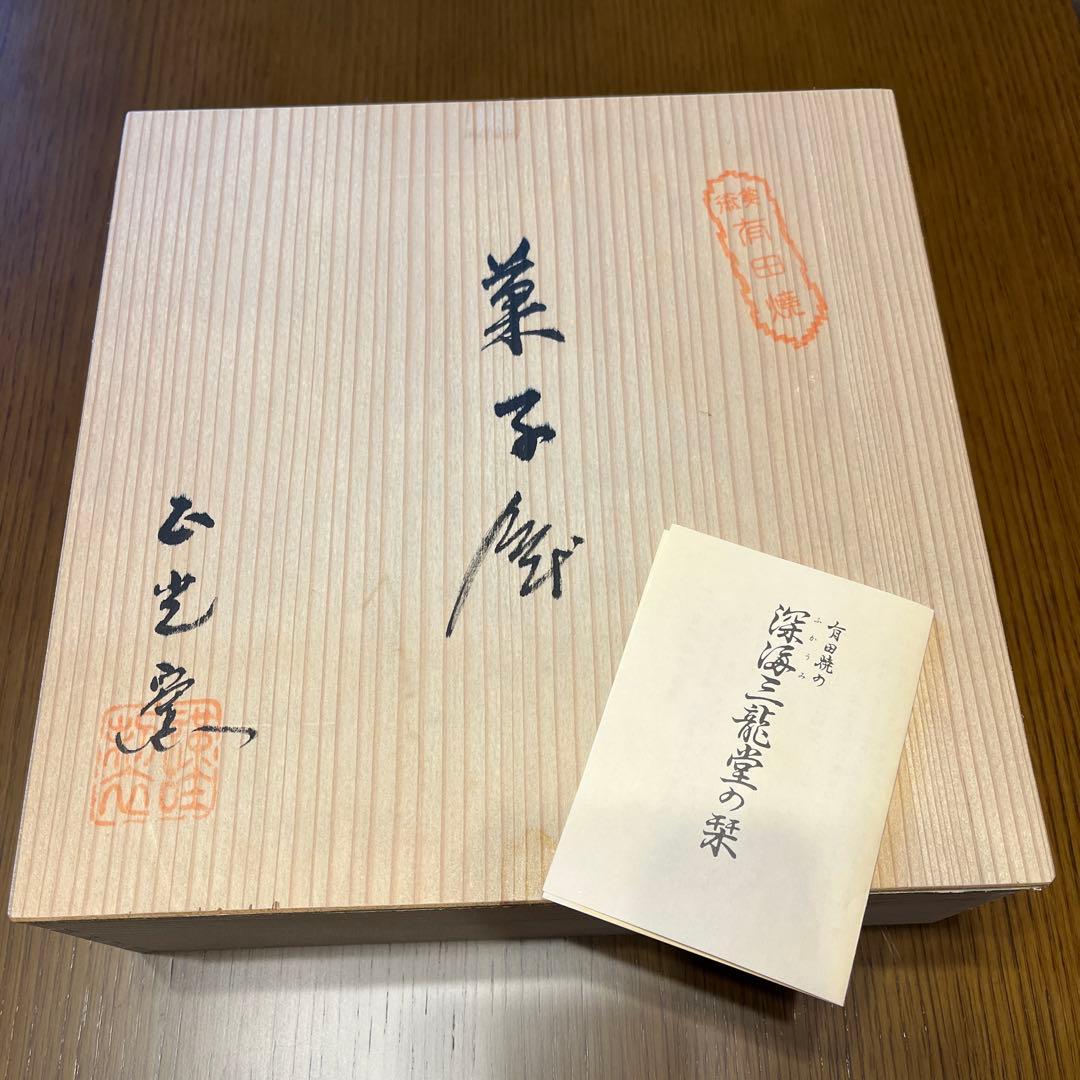 美術
有田燒
菓子鉢
正光窯
有田焼の
深海三龍堂の栞
ふかうみ